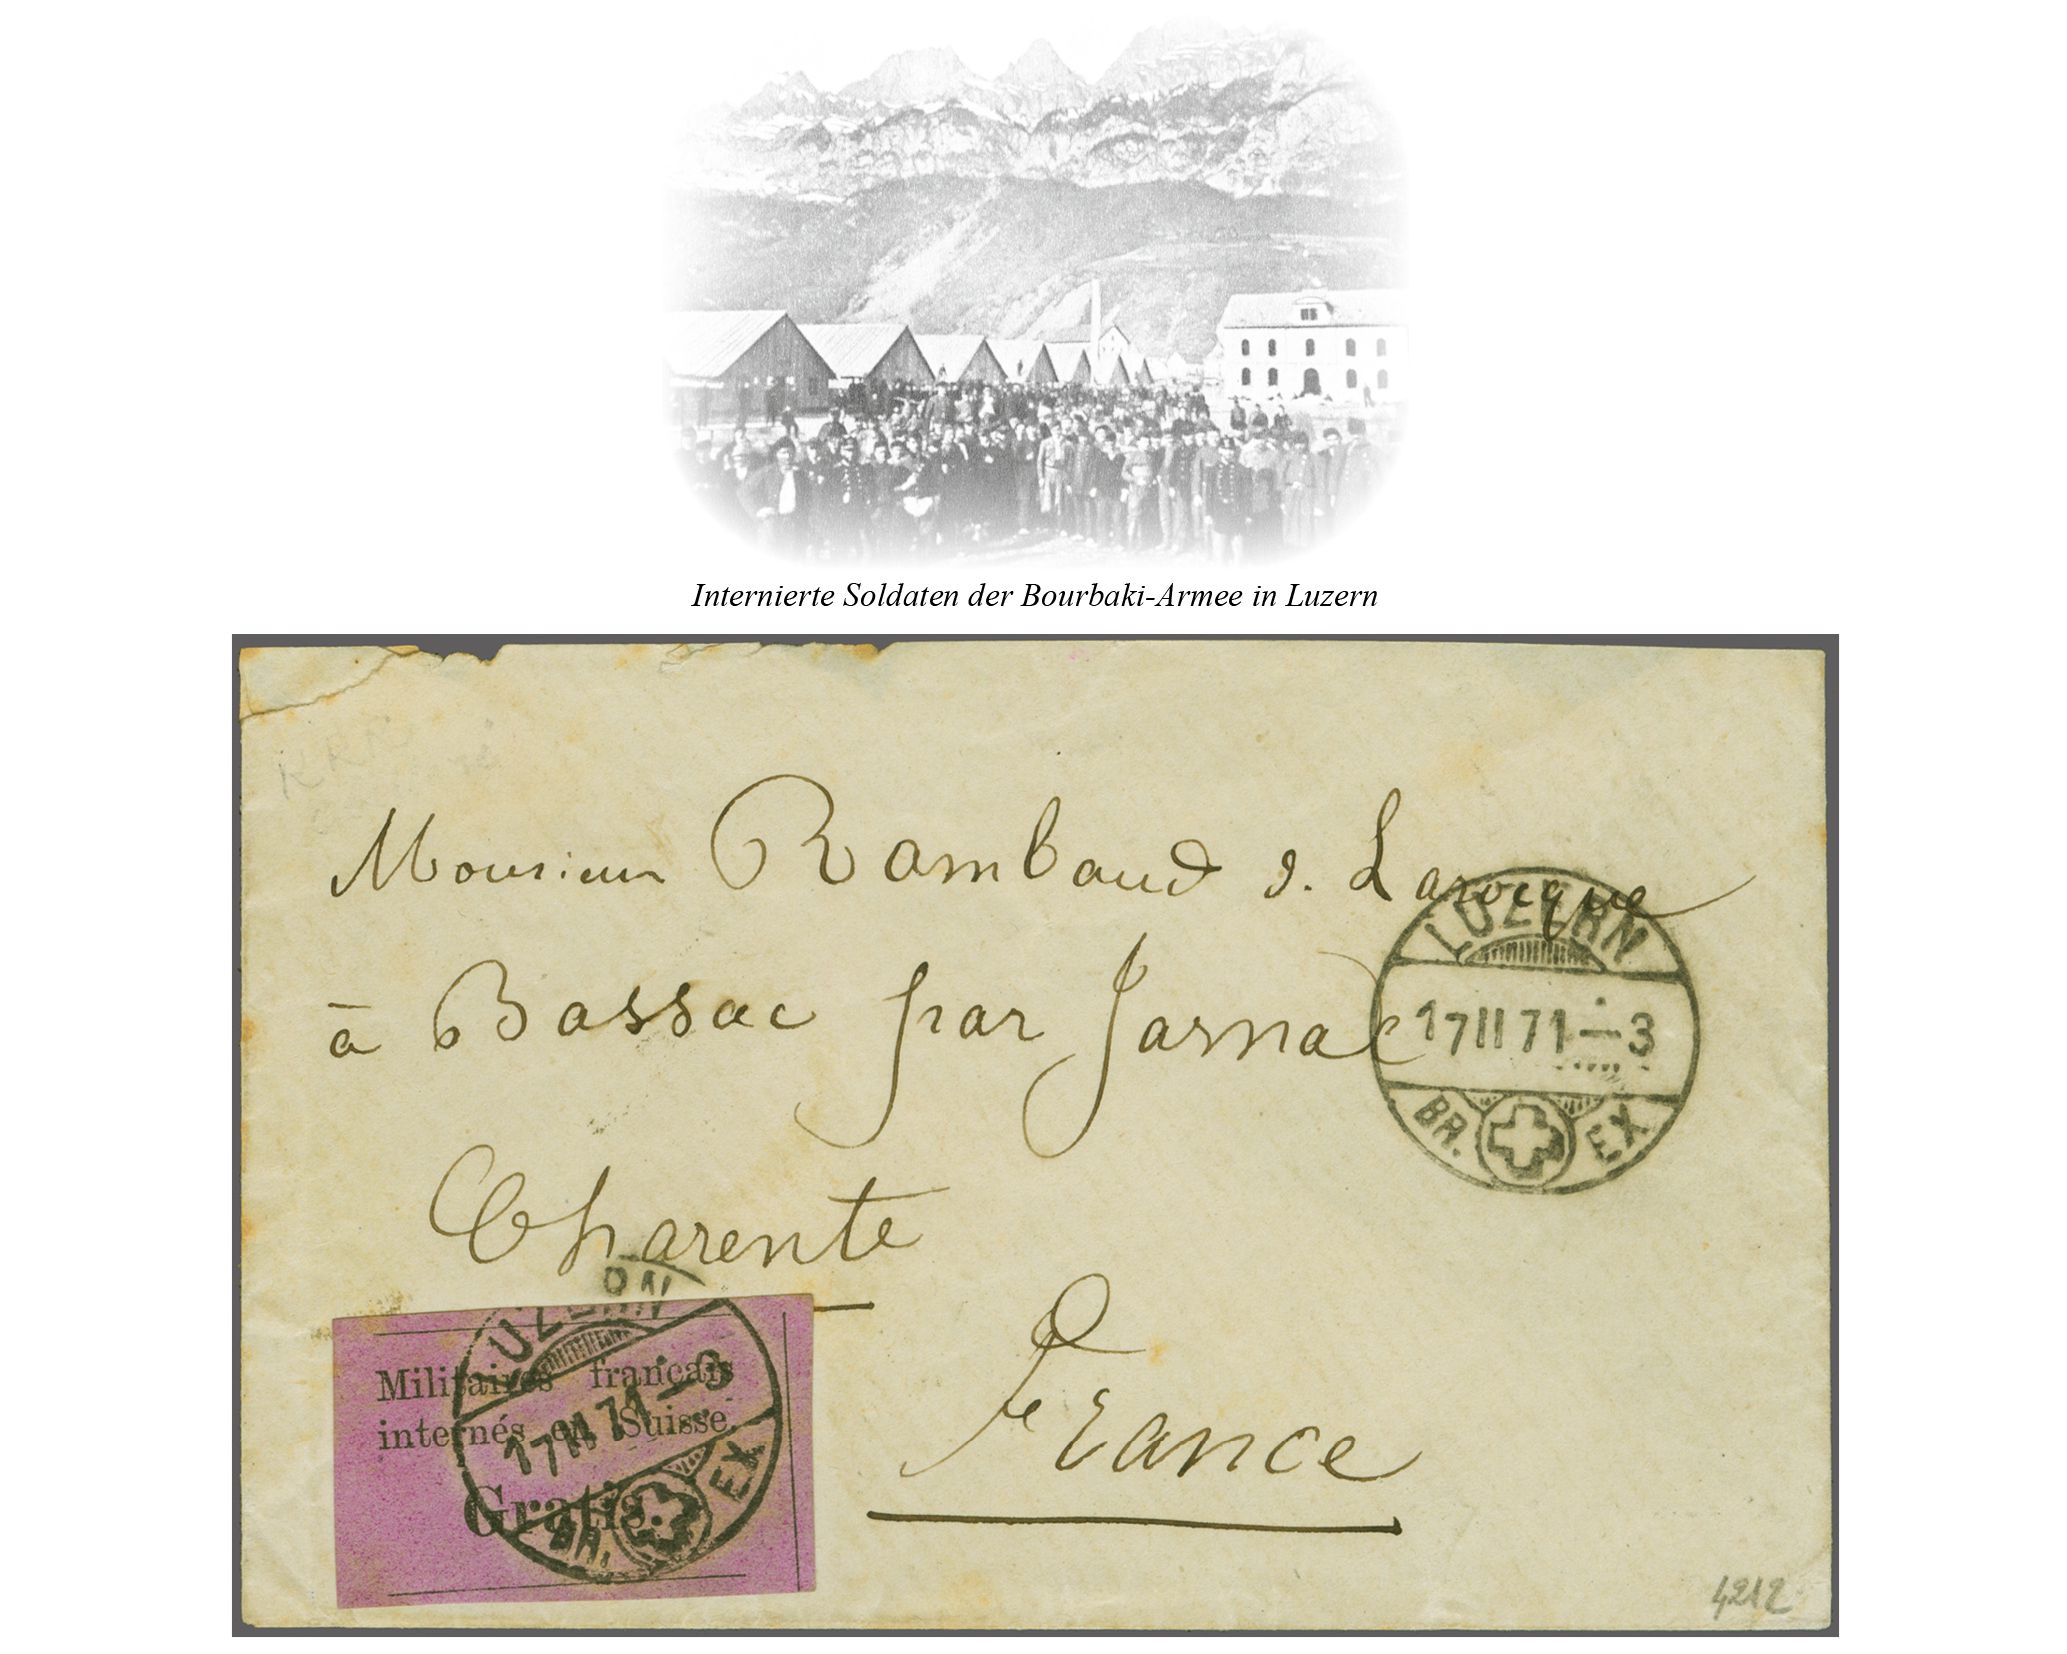 Internierte Soldaten der Bourbaki-Armee in Luzern
Monsieur Rambaud d. Larocque
à Bassac par Jarnac
Charente
France
LUZERN
17 II 71 – 3
BR. EX
LUZERN
17 II 71 – 3
BR. EX
Militaires français
internés en Suisse.
Gratis.
4212